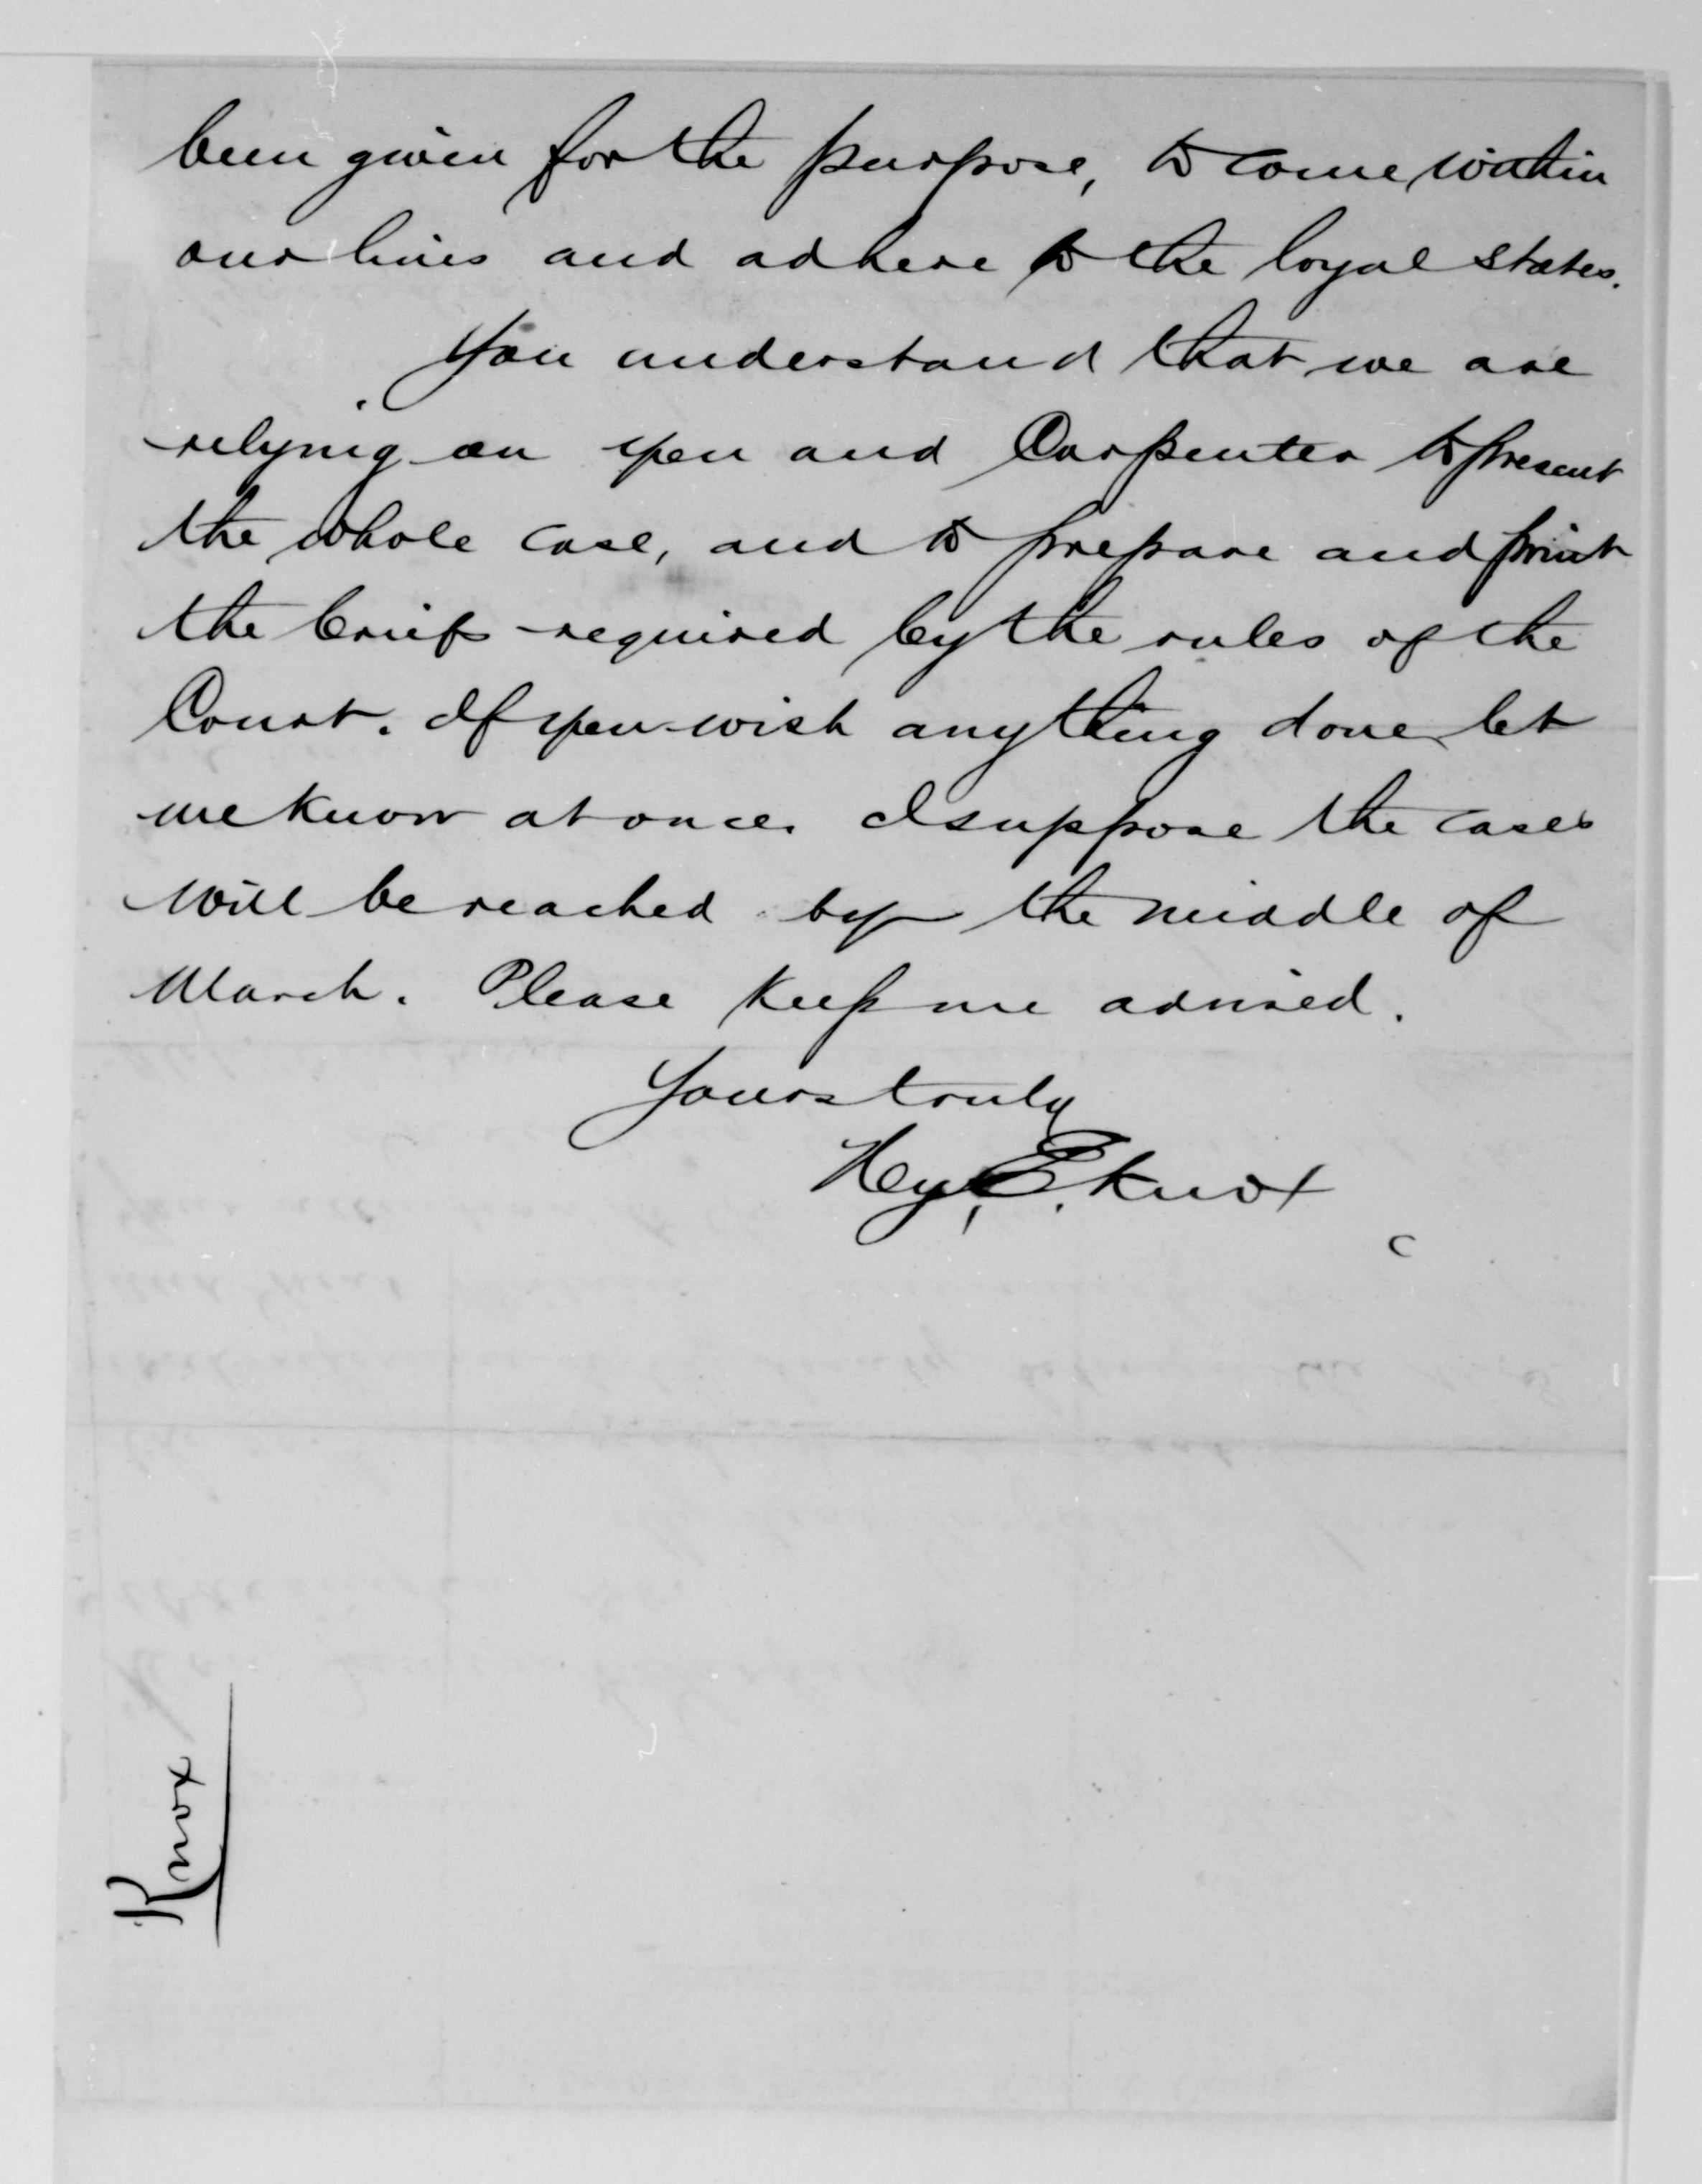 been given for the purpose, to come within
our lines and adhere to the loyal states.
You understand that we are
relying on you and Carpenter to present
the whole case, and to prepare and print
the briefs required by the rules of the
Court. If you wish anything done let
me know at once. I suppose the cases
will be reached by the middle of
March. Please keep me advised.
Yours truly
Hy. E. Knox
Knox